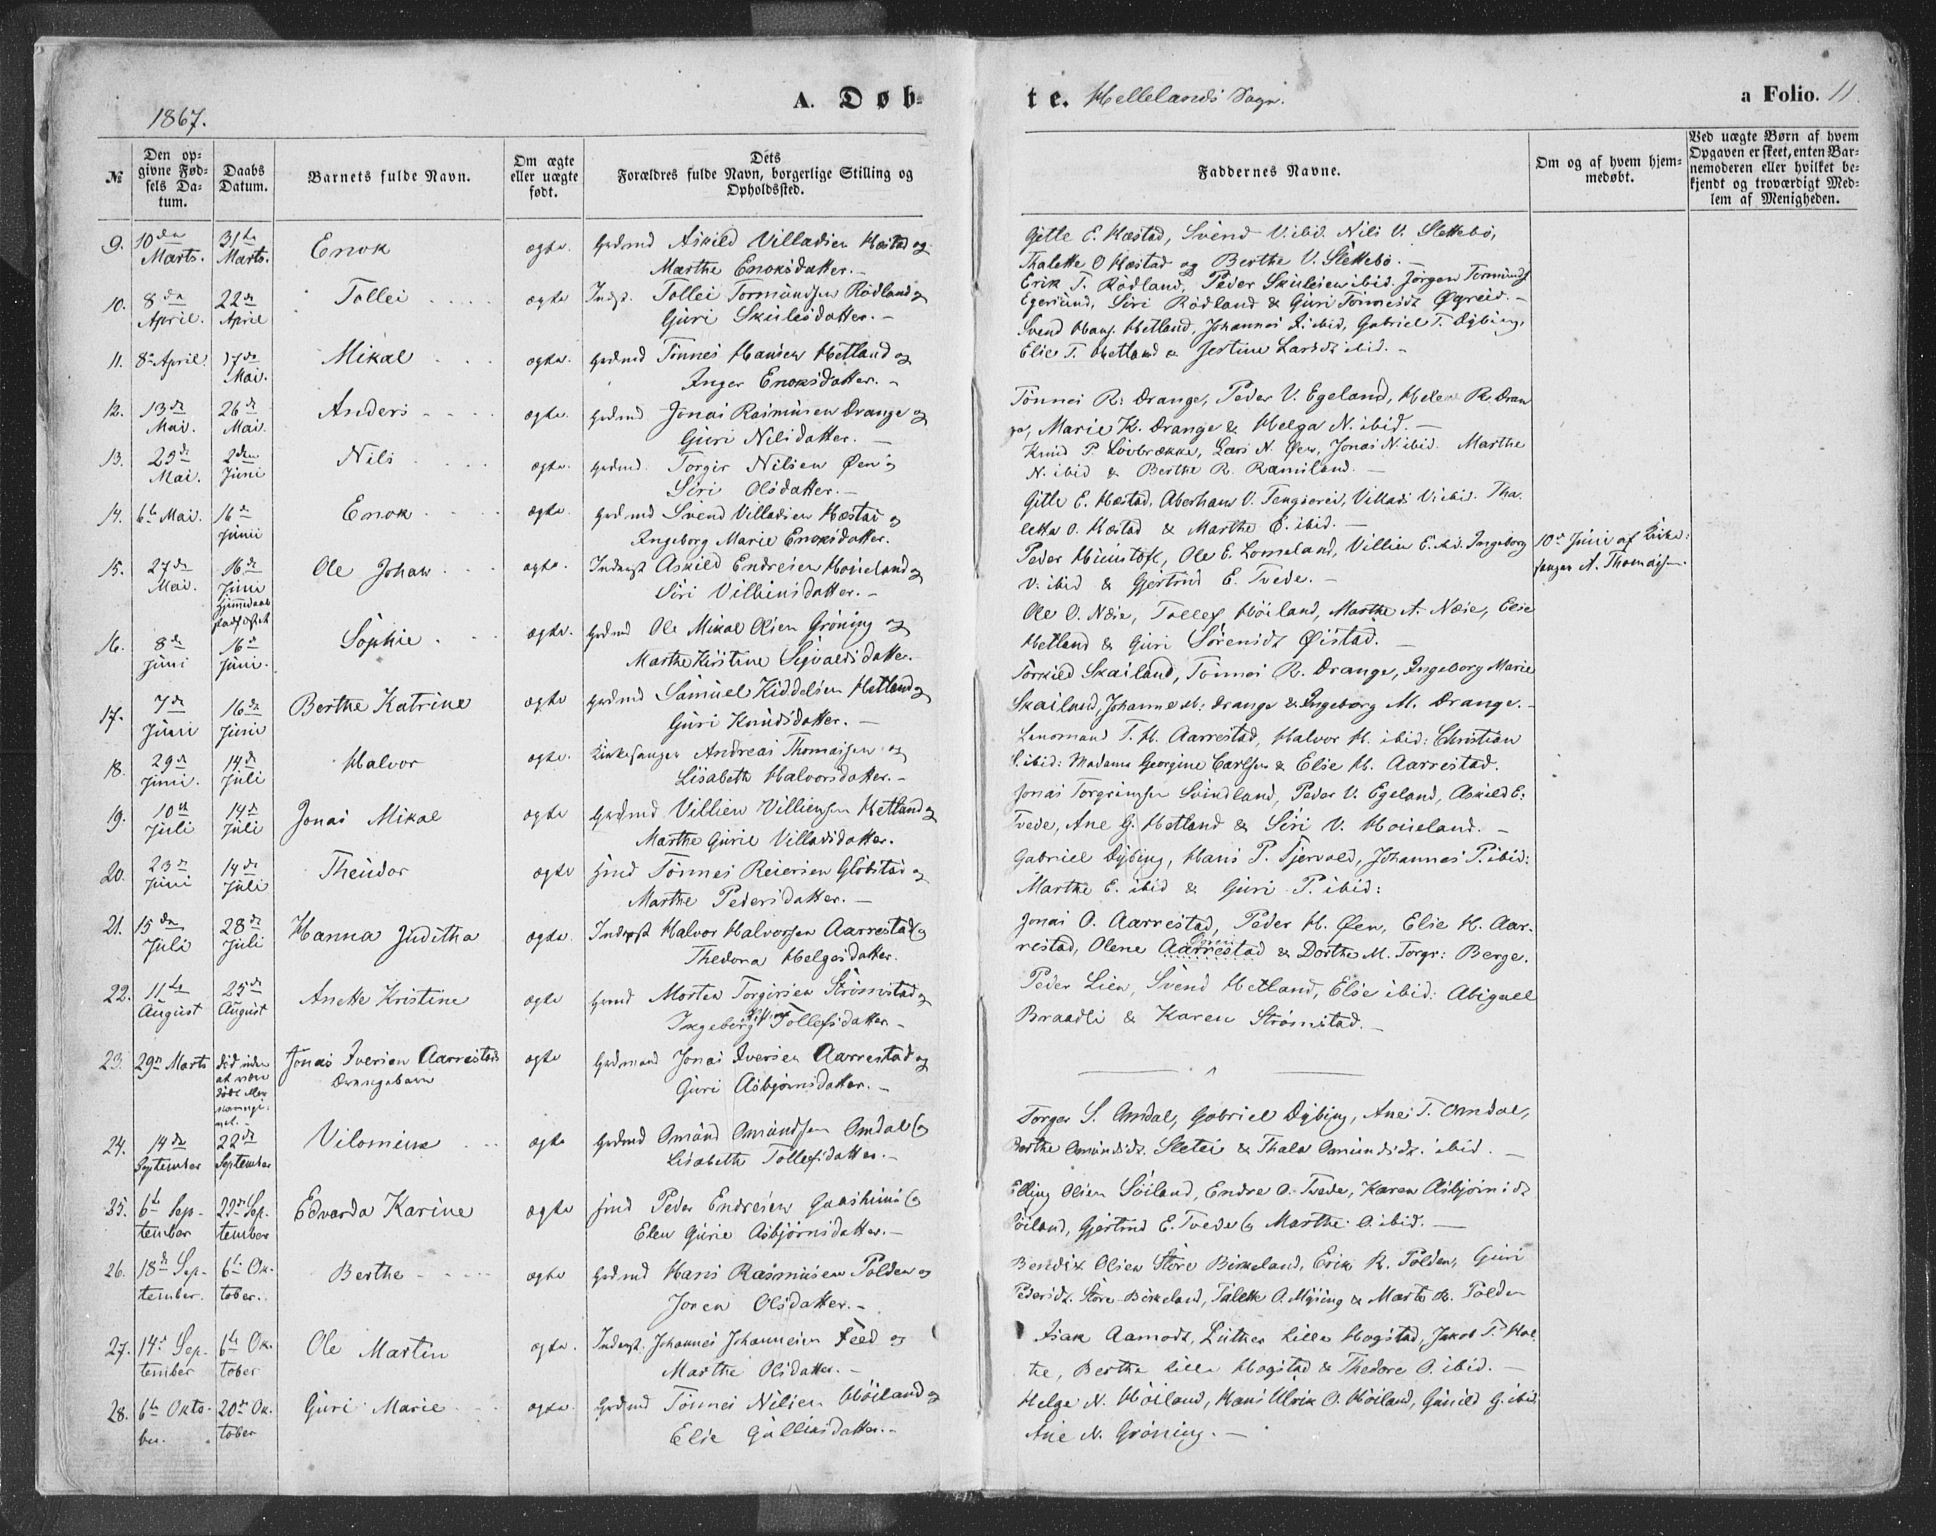 1867.
A. Døb-
te. Hellelands Sogn.
a Folio. 11.
№
Den op-
givne Fød-
sels Da-
tum.
Daabs
Datum.
Barnets fulde Navn.
Om ægte
eller uægte
født.
Dets
Forældres fulde Navn, borgerlige Stilling og
Opholdssted.
Faddernes Navne.
Om og af hvem hjem-
medøbt.
Ved uægte Børn af hvem
Opgaven er skeet, enten Bar-
nemoderen eller hvilket be-
kjendt og troværdigt Med-
lem af Menigheden.
9. 10de Marts. 31te Marts. Enok ægte. Grdmd Askild Villadsen Hæstad og
Marthe Enoksdatter.
Gitle E. Hæstad, Svend V. ibid. Nils V. Slettebø,
Thalette O Hæstad og Berthe V. Slettebø.
10. 8de April. 22de April Tollei ægte Indst. Tollei Tormundsen Rødland og
Guri Skulesdatter.
Erik T. Rødland, Peder Skulesen ibid. Jørgen Tormunds
Egersund, Siri Rødland & Guri Tønnesdt Øgreid.
11. 8de April. 17de Mai. Mikal ægte. Grdmd Tønnes Hansen Hetland og
Inger Enoksdatter.
Svend Hans. Hetland, Johannes ibid, Gabriel T. Dybing,
Elie T. Hetland & Jestine Larsdt ibid.
12. 13de Mai. 26de Mai. Anders ægte. Grdmd Jonas Rasmusen Drange og
Guri Nilsdatter.
Tønnes R. Drange, Peder V. Egeland, Helene R. Dran
ge, Marie K. Drange & Helga N. ibid.
13. 25de Mai. 2den Juni Nils ægte. Grdmd. Torgir Nilsen Øen og
Siri Olsdatter.
Knud P. Løvbrække, Lars N. Øen, Jonas N. ibid. Marthe
N. ibid & Berthe R. Ramsland.
14. 6te Mai. 16de Juni Enok ægte. Grdmd Svend Villadsen Hæstad og
Ingeborg Marie Enoksdatter.
Gitle E. Hæstad, Aberham V. Tengesereid, Villads V. ibid. Tha-
lette O. Hæstad & Marthe E. ibid.
15. 27de Mai. 16de Juni Ole Johan ægte. Inderst Askild Endresen Houeland og
Siri Villiensdatter.
Peder Hunstoft, Ole E. Lomeland, Villien E. ibid. Ingeborg
V. ibid & Gjertrud E. Tvede.
10de Juni af Kirke-
sanger A. Thomassen.
16. 8de Juni 16de Juni. Sophie ægte. Grdmd Ole Mikal Olsen Grøning og
Marthe Kirstine Sigvaldsdatter.
Ole O. Næse, Tollef Høiland, Marthe A. Næse, Elie
Hetland & Guri Sørensdt Øistad.
17. 7de Juni 16de Juni Berthe Katrine ægte Grdmd Samuel Kiddelsen Hetland og
Guri Knudsdatter.
Torkild Skailand, Tønnes R. Drange, Ingeborg Marie
Skailand, Johanne M. Drange & Ingeborg M. Drange.
18. 29de Juni. 14de Juli Halvor ægte. Kirkesanger Andreas Thomassen og
Lisabeth Halvorsdatter.
Lensmand T. H. Aarrestad, Halvor H. ibid: Christian
ibid: Madame Georgine Carlsen & Elie H. Aarrestad.
19. 10de Juli 14de Juli Jonas Mikal ægte Grdmd Villien Villiensen Hetland og
Marthe Gurie Villadsdatter.
Jonas Torgrimsen Svindland, Peder V. Egeland, Askild E.
Tvede, Ane G. Hetland & Siri V. Houeland.
20. 23de Juni 14de Juli Theodor ægte Hmd Tønnes Reiersen Globstad og
Marthe Pedersdatter.
Gabriel Dybing, Hans P. Tjervold, Johannes P. ibid:
Marthe E. ibid & Guri P. ibid:
21. 15de Juli 28de Juli Hanna Juditha ægte. Inderst Halvor Halvorsen Aarrestad og
Thedora Helgesdatter.
Jonas O. Aarrestad, Peder H. Øen, Elie H. Aar-
restad, Olene Aarrestad & Dorthe M. Torgr: Berge.
22. 11te August 25de August Anette Kristine ægte Grmd Morten Torgirsen Strømstad og
Ingeborg Tollefsdatter.
Peder Lien, Svend Hetland, Elie ibid: Abigael
Braadli & Karen Strømstad.
23. 29de Marts død uden
at være
døbt eller
Jonas Iversen Aarrestads
Drengebarn
ægte Grdmand Jonas Iversen Aarrestad og
Guri Asbjørnsdatter.
24. 14de September 22de September Vilomine ægte Grdmd Omund Omundsen Omdal og
Lisabeth Tollefsdatter.
Torger S. Omdal, Gabriel Dybing, Ane T. Omdal,
Berthe Omundsdt. Sletei & Thala Omundsdt. ibid.
25. 6te Sep-
tember 22de Sep-
tember Edvarda Karine ægte Hmd Peder Endresen Gaashuus og
Elen Gurie Asbjørnsdatter.
Elling Olsen Søiland, Endre O. Tvede, Karen Asbjørnsdt
Søiland, Gjertrud E. Tvede og Marthe O. ibid.
26. 18de Sep-
tember. 6te Ok-
tober. Berthe ægte Grdmd Hans Rasmusen Polden og
Joren Olsdatter.
Bendix Olsen Store Birkeland, Erik R. Polden, Guri
Pedersdt. Store Birkeland, Talette O. Mysing & Marte R. Polden
27. 14de Sep-
tember 6te Ok-
tober Ole Martin ægte. Inderst. Johannes Johannesen Feed og
Marthe Olsdatter.
Isak Aamodt, Luther Lille Hogstad, Jakob T. Hol
te, Berthe Lille Hogstad & Thedore O. ibid.
28. 6te Okto-
ber. 20de Ok-
tober Guri Marie ægte. Grdmd Tønnes Nilsen Høiland og
Elie Gulliksdatter.
Helge N. Høiland, Hans Ulrik O. Høiland, Gunild G. ibid.
Ane N. Grøning.